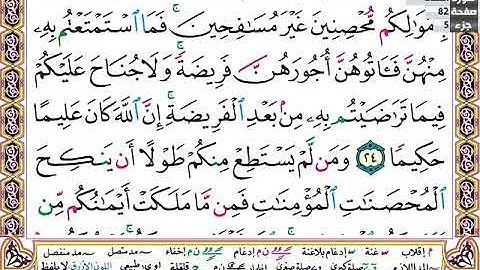 82
صفحة
5
جزء
بِأَمْوَٰلِكُم مُّحْصِنِينَ غَيْرَ مُسَٰفِحِينَ ۚ فَمَا ٱسْتَمْتَعْتُم بِهِۦ
مِنْهُنَّ فَـَٔاتُوهُنَّ أُجُورَهُنَّ فَرِيضَةً ۚ وَلَا جُنَاحَ عَلَيْكُمْ
فِيمَا تَرَٰضَيْتُم بِهِۦ مِنۢ بَعْدِ ٱلْفَرِيضَةِ ۚ إِنَّ ٱللَّهَ كَانَ عَلِيمًا
حَكِيمًا ٢٤ وَمَن لَّمْ يَسْتَطِعْ مِنكُمْ طَوْلًا أَن يَنكِحَ
ٱلْمُحْصَنَٰتِ ٱلْمُؤْمِنَٰتِ فَمِن مَّا مَلَكَتْ أَيْمَٰنُكُم مِّن
إقلاب غنة إدغام بلاغنة إدغام إخفاء مد متصل مد منفصل